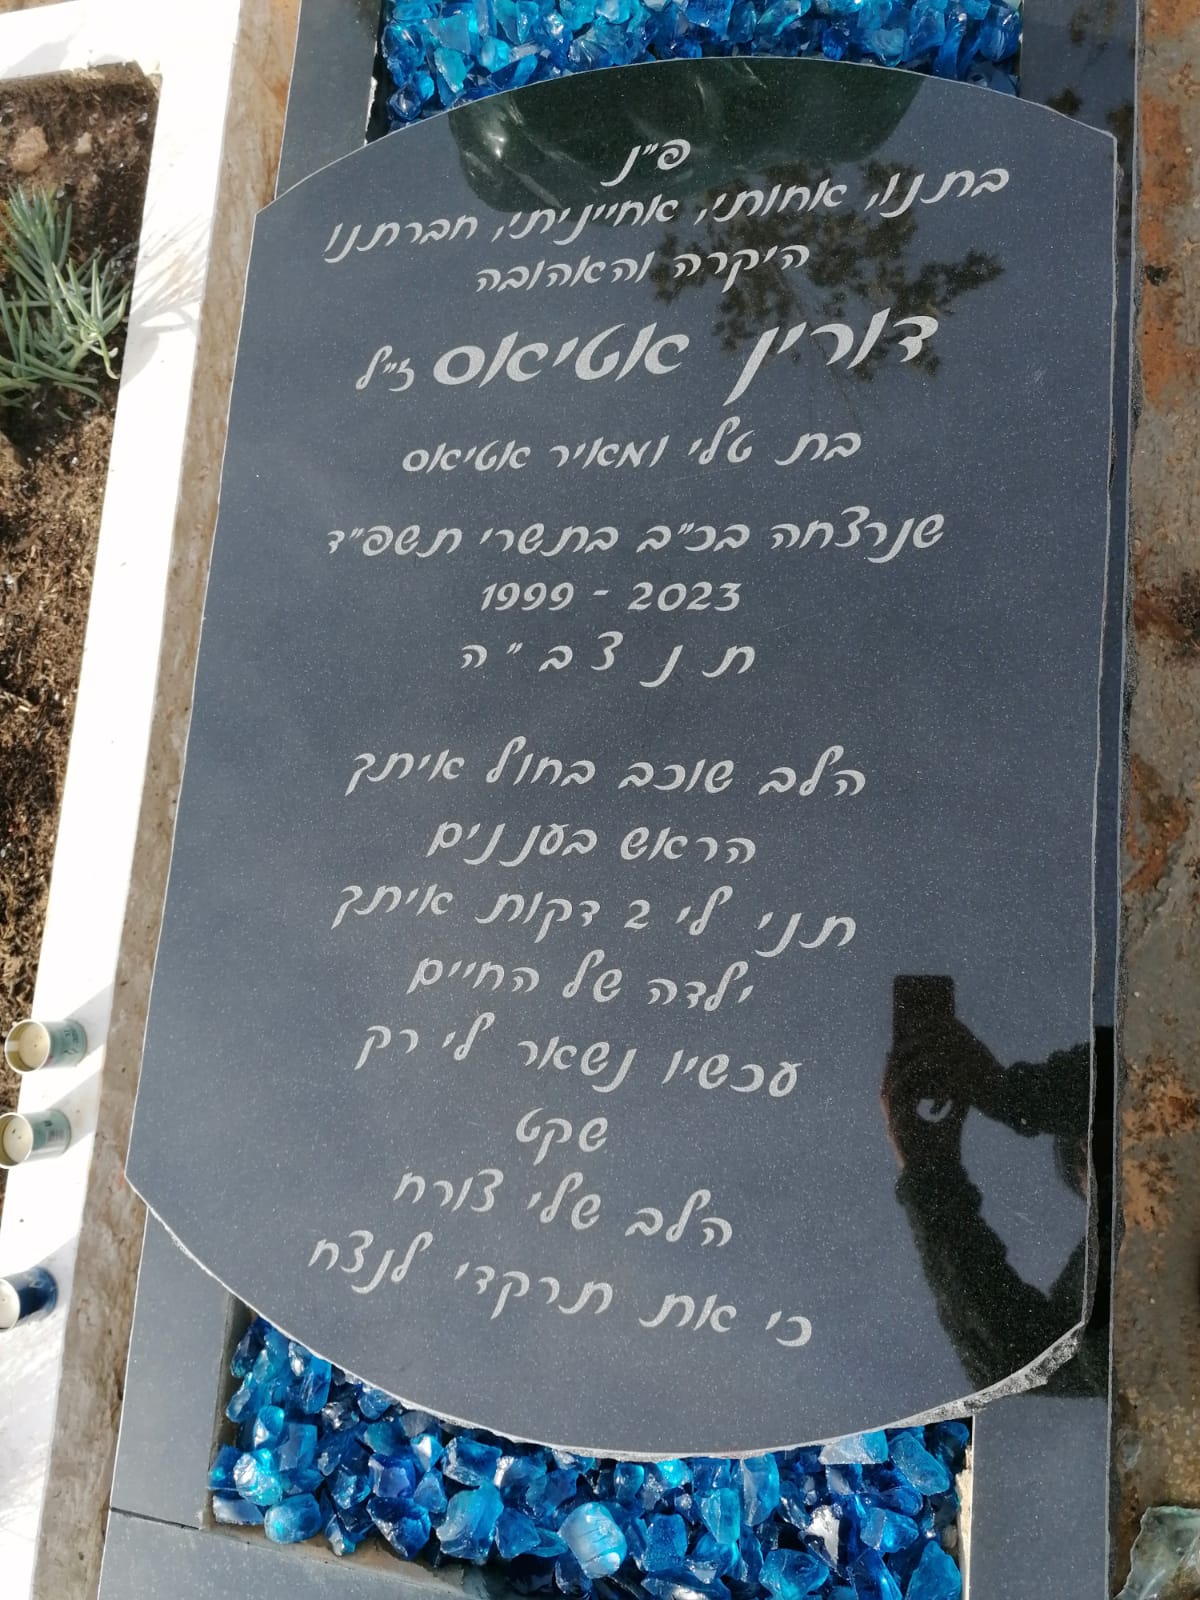 פ"נ
בתנו, אחותי, אחייניתי, חברתנו
היקרה והאהובה
דורין אטיאס ז"ל
בת טלי ומאיר אטיאס
שנרצחה בכ"ב בתשרי תשפ"ד
1999 - 2023
ת נ צ ב " ה
הלב שוכב בחול איתך
הראש בעננים
תני לי 2 דקות איתך
ילדה של החיים
עכשיו נשאר לי רק
שקט
הלב שלי צורח
כי את תרקדי לנצח